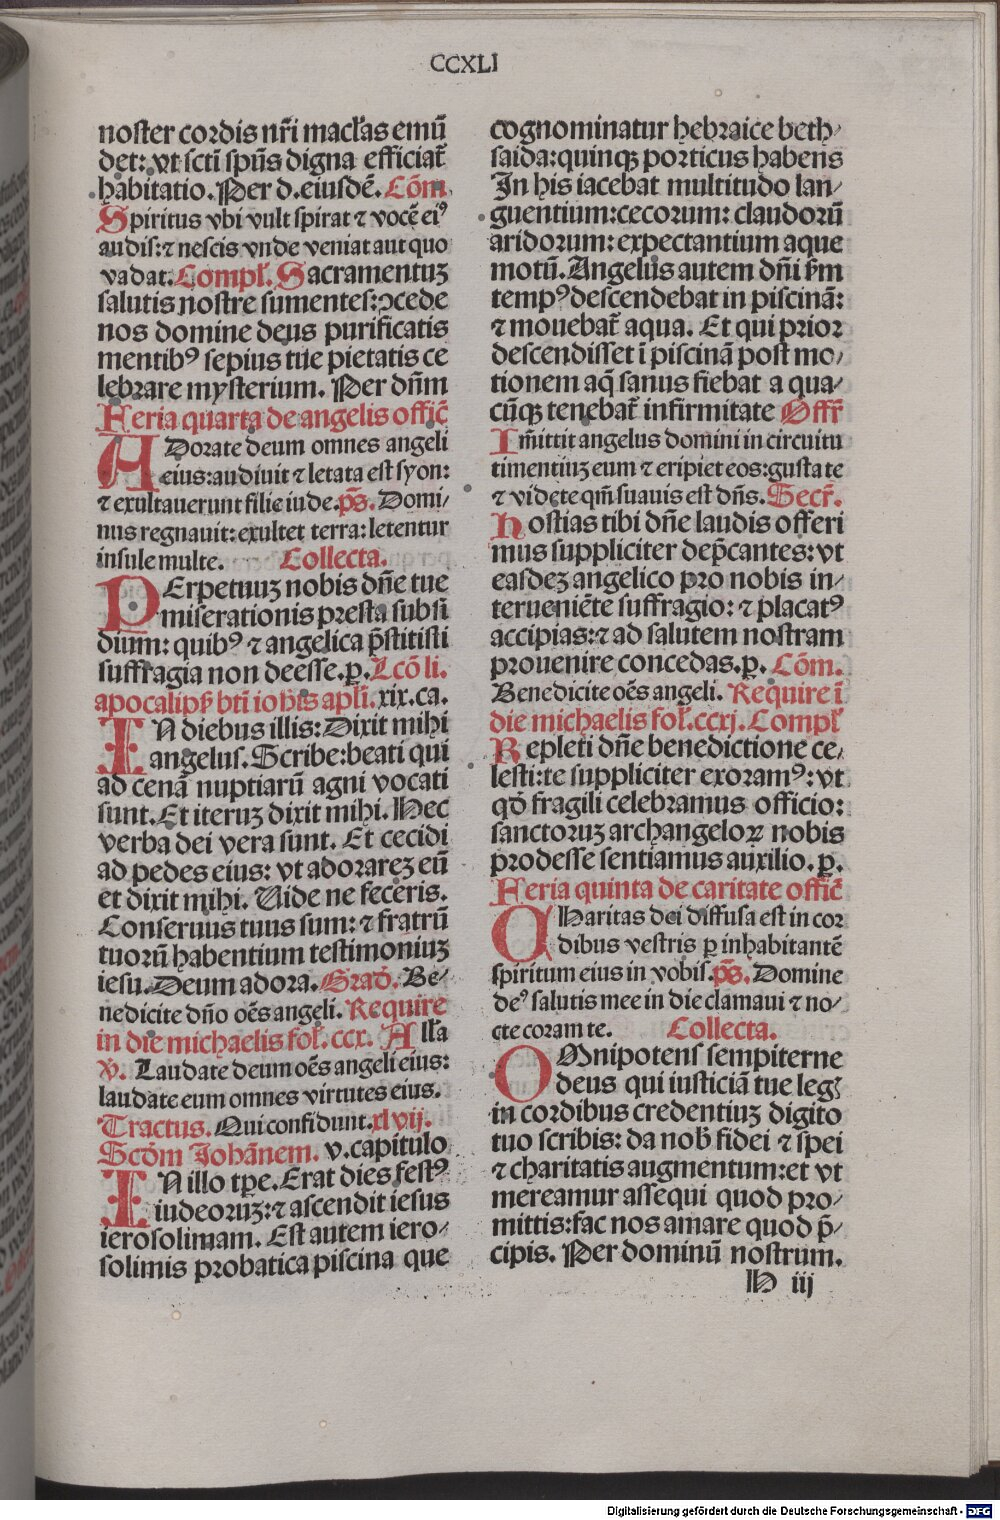 CCXLI
noster cordis nr̄i macl̄as emū
det: vt sctī spūs digna efficiat̄
habitatio. Per d. eiusdē. Cōm.
Spiritus vbi vult spirat ⁊ vocē eiꝰ
audis: ⁊ nescis vnde veniat aut quo
vadat. Compl̄. Sacramentuꝫ
salutis nostre sumentes: ꝯcede
nos domine deus purificatis
mentibꝰ sepius tue pietatis ce
lebrare mysterium. Per dn̄m
Feria quarta de angelis offic̄
ADorate deum omnes angeli
eius: audiuit ⁊ letata est syon:
⁊ exultauerunt filie iude. p̄s. Domi⸗
nus regnauit: exultet terra: letentur
insule multe. Collecta.
PErpetuuꝫ nobis dn̄e tue
miserationis presta subsi
dium: quibꝰ ⁊ angelica p̄stitisti
suffragia non deesse. ꝑ. Lcō li.
apocalipẜ bt̄i iohis apl̄i. xix. ca.
IN diebus illis: Dixit mihi
angelus. Scribe: beati qui
ad cenā nuptiarū agni vocati
sunt. Et iteruꝫ dixit mihi. Hec
verba dei vera sunt. Et cecidi
ad pedes eius: vt adorareꝫ eū
et dixit mihi. Vide ne feceris.
Conseruus tuus sum: ⁊ fratrū
tuorū habentium testimoniuꝫ
iesu. Deum adora. Grad̄. Be⸗
nedicite dn̄o oēs angeli. Require
in die michaelis fol̄. ccx. All̄a
℣. Laudate deum oēs angeli eius:
laudate eum omnes virtutes eius.
Tractus. Qui confidunt. xlvij.
Scd̄m Johānem. v. capitulo
IN illo tp̄e. Erat dies festꝰ
iudeoruꝫ: ⁊ ascendit iesus
ierosolimam. Est autem iero⸗
solimis probatica piscina que
cognominatur hebraice beth⸗
saida: quinqꝫ porticus habens
In his iacebat multitudo lan⸗
guentium: cecorum: claudorū
aridorum: expectantium aque
motū. Angelus autem dn̄i ẜm
tempꝰ descendebat in piscinā:
⁊ mouebat̄ aqua. Et qui prior
descendisset ī piscinā post mo⸗
tionem aq̄ sanus fiebat a qua⸗
cūqꝫ tenebat̄ infirmitate Offr̄
Im̄ittit angelus domini in circuitu
timentiuꝫ eum ⁊ eripiet eos: gustate
⁊ videte qm̄ suauis est dn̄s. Secr̄.
Hostias tibi dn̄e laudis offeri
mus suppliciter dep̄cantes: vt
easdeꝫ angelico pro nobis in⸗
terueniēte suffragio: ⁊ placatꝰ
accipias: ⁊ ad salutem nostram
prouenire concedas. ꝑ. Cōm.
Benedicite oēs angeli. Require ī
die michaelis fol̄. ccxj. Compl̄
Repleti dn̄e benedictione ce⸗
lesti: te suppliciter exoramꝰ: vt
qd̄ fragili celebramus officio:
sanctoruꝫ archangeloꝝ nobis
prodesse sentiamus auxilio. ꝑ.
Feria quinta de caritate offic̄
CHaritas dei diffusa est in cor
dibus vestris ꝑ inhabitantē
spiritum eius in vobis. p̄s. Domine
deꝰ salutis mee in die clamaui ⁊ no⸗
cte coram te. Collecta.
OMnipotens sempiterne
deus qui iusticiā tue legꝫ
in cordibus credentiuꝫ digito
tuo scribis: da nob̄ fidei ⁊ spei
⁊ charitatis augmentum: et vt
mereamur assequi quod pro⸗
mittis: fac nos amare quod p̄⸗
cipis. Per dominū nostrum.
H iij
Digitalisierung gefördert durch die Deutsche Forschungsgemeinschaft - DFG